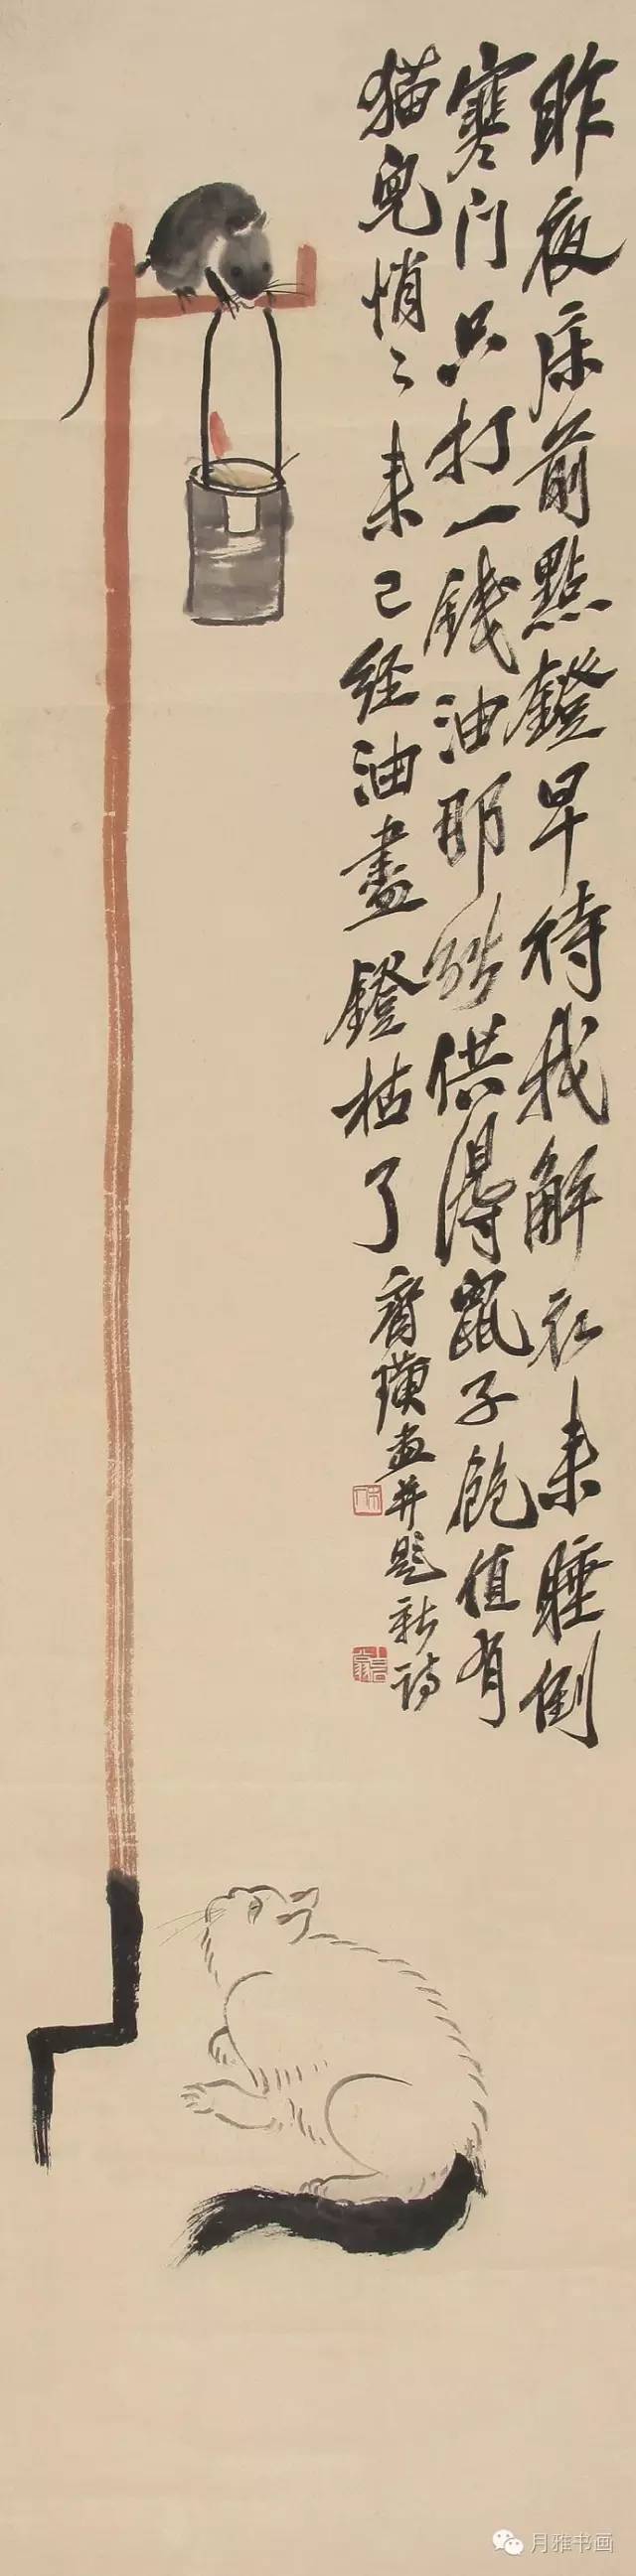 昨夜床前點鐙早待我解衣来睡倒
寒门只打一錢油那能供得鼠子飽值有
猫兒悄〻来已经油盡鐙枯了
齊璜画并題新詩
月雅书画